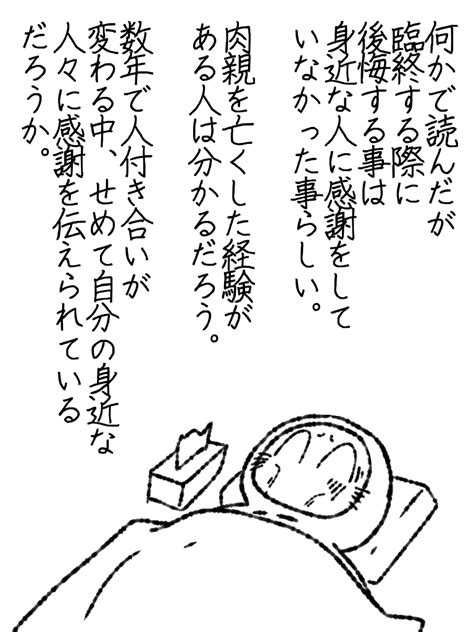 何かで読んだが
臨終する際に
後悔する事は
身近な人に感謝をして
いなかった事らしい。
肉親を亡くした経験が
ある人は分かるだろう。
数年で人付き合いが
変わる中、せめて自分の身近な
人々に感謝を伝えられている
だろうか。